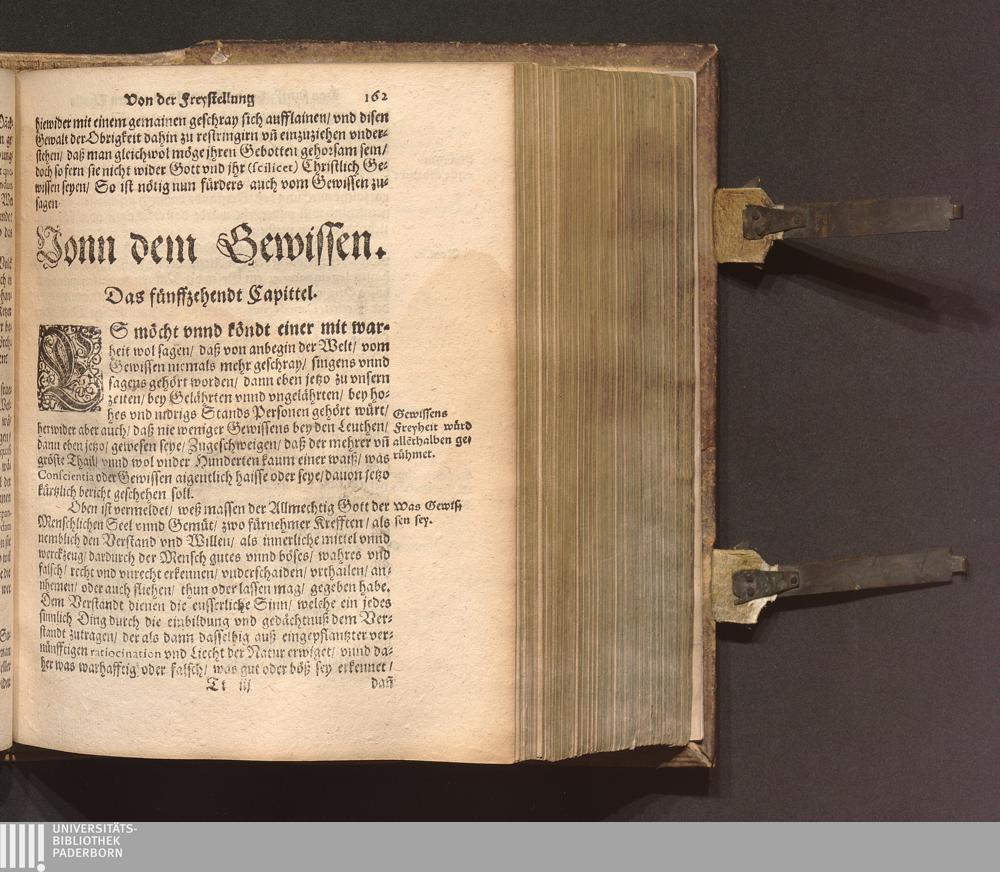 Von der Freystellung 162
hiewider mit einem gemainen geschray sich aufflainen/ vnd disen
Gewalt der Obrigkeit dahin zu restringirn vñ einzuziehen vnder-
stehen/ daß man gleichwol möge jhren Gebotten gehorsam sein/
doch so fern sie nicht wider Gott vnd jhr (scilicet) Christlich Ge-
wissen seyen/ So ist nötig nun fürders auch vom Gewissen zu-
sagen.
Vonn dem Gewissen.
Das fünffzehendt Capittel.
ES möcht vnnd köndt einer mit war-
heit wol sagen/ daß von anbegin der Welt/ vom
Gewissen niemals mehr geschray/ singens vnnd
sagens gehört worden/ dann eben jetzo zu vnsern
zeiten/ bey Gelährten vnnd vngelährten/ bey ho-
hes vnd nidrigs Stands Personen gehört würt/
herwider aber auch/ daß nie weniger Gewissens bey den Leuthen/
dann eben jetzo/ gewesen seye/ Zugeschweigen/ daß der mehrer vñ
gröste Thail/ vnnd wol vnder Hunderten kaum einer waiß/ was
Conscientia oder Gewissen aigentlich haisse oder seye/ dauon jetzo
kürtzlich bericht geschehen soll.
Gewissens
Freyheit würd
allerthalben ge-
rühmet.
Oben ist vermeldet/ weß massen der Allmechtig Gott der
Menschlichen Seel vnnd Gemüt/ zwo fürnehmer Krefften/ als
nemblich den Verstand vnd Willen/ als innerliche mittel vnnd
werckzeug/ dardurch der Mensch gutes vnnd böses/ wahres vnd
falsch/ recht vnd vnrecht erkennen/ vnderschaiden/ vrthailen/ an-
nhemen/ oder auch fliehen/ thun oder lassen mag/ gegeben habe.
Dem Verstandt dienen die eusserliche Sinn/ welche ein jedes
sinnlich Ding durch die einbildung vnd gedächtnuß dem Ver-
standt zutragen/ der als dann dasselbig auß eingepflantzter ver-
nünfftigen ratiocination vnd Liecht der Natur erwiget/ vnnd da-
her was warhafftig oder falsch/ was gut oder böß sey erkennet/
Was Gewis-
sen sey.
Tt iij dañ
UNIVERSITÄTS-
BIBLIOTHEK
PADERBORN